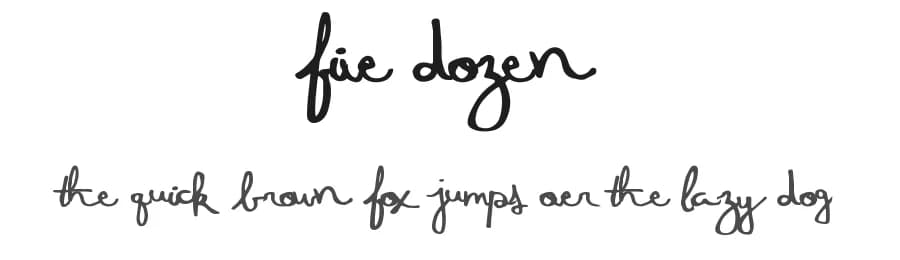 five dozen
the quick brown fox jumps over the lazy dog